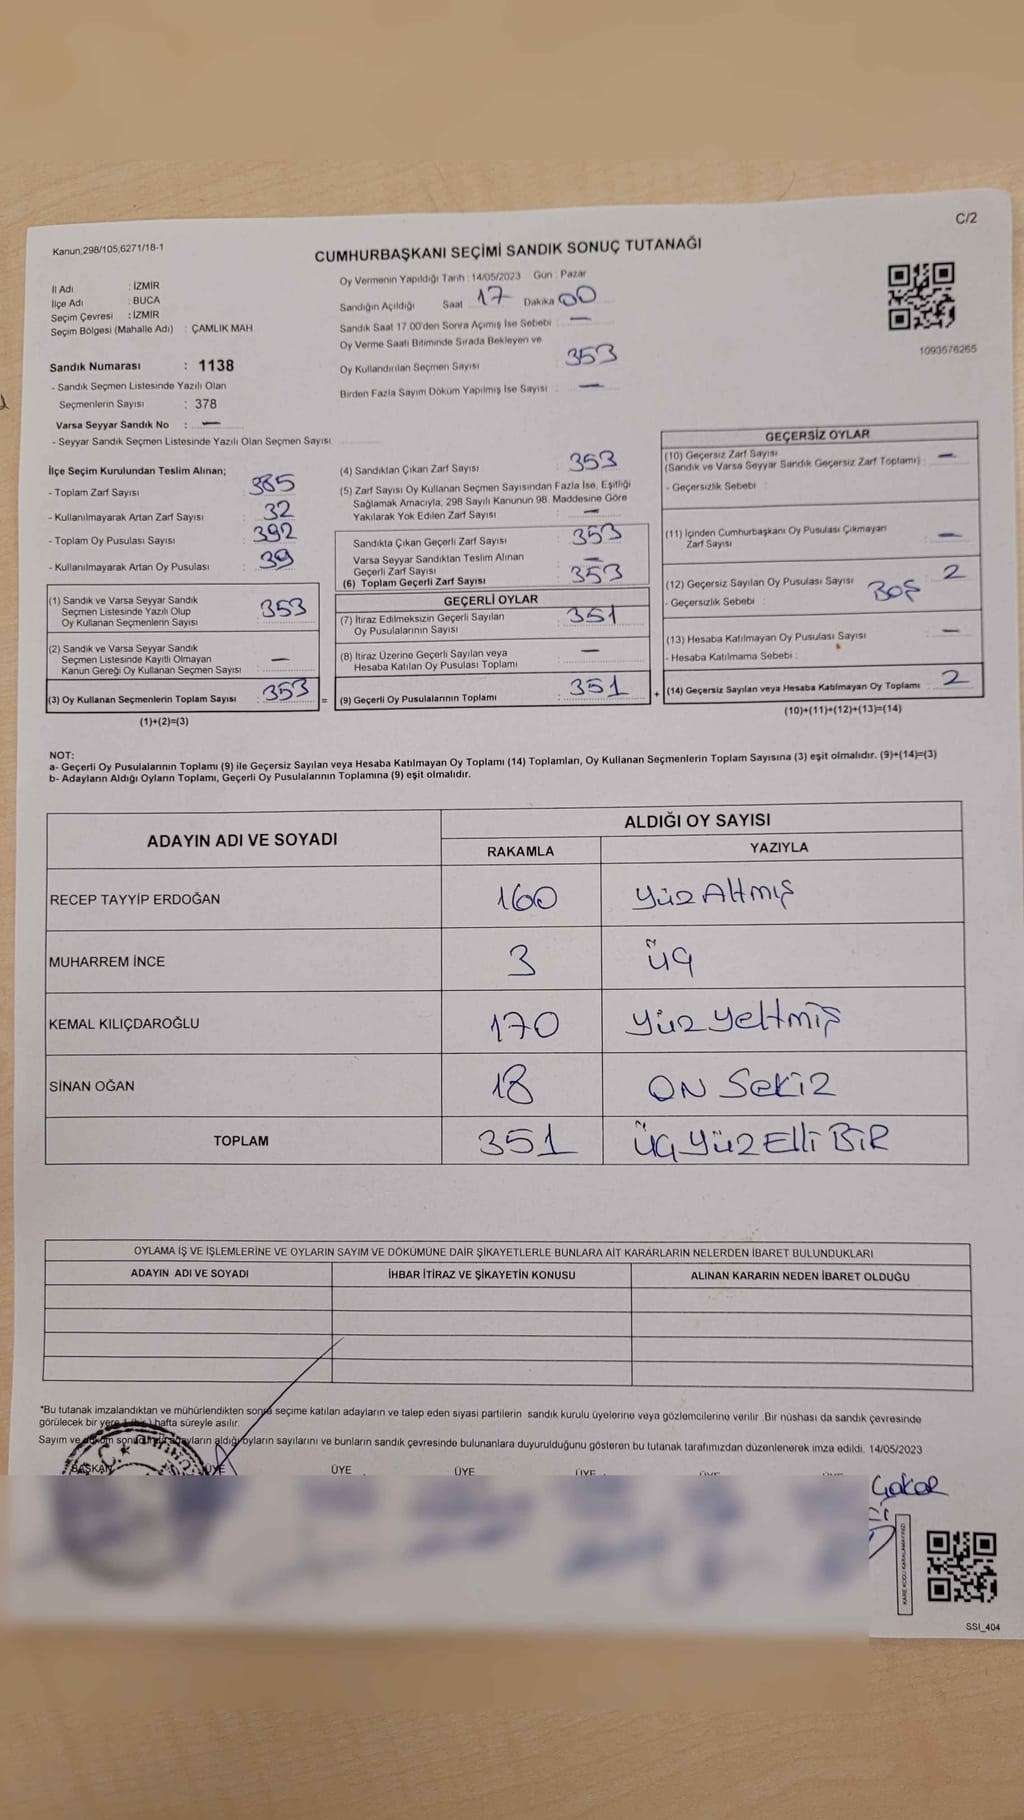 C/2
Kanun;298/105,6271/18-1
CUMHURBAŞKANI SEÇİMİ SANDIK SONUÇ TUTANAĞI
İl Adı : İZMİR
İlçe Adı : BUCA
Seçim Çevresi : İZMİR
Seçim Bölgesi (Mahalle Adı) : ÇAMLIK MAH.
Sandık Numarası : 1138
- Sandık Seçmen Listesinde Yazılı Olan
Seçmenlerin Sayısı : 378
Varsa Seyyar Sandık No : —
- Seyyar Sandık Seçmen Listesinde Yazılı Olan Seçmen Sayısı
Oy Vermenin Yapıldığı Tarih : 14/05/2023 Gün : Pazar
Sandığın Açıldığı Saat 17 Dakika 00
Sandık Saat 17.00'den Sonra Açımış İse Sebebi : —
Oy Verme Saati Bitiminde Sırada Bekleyen ve
Oy Kullandırılan Seçmen Sayısı : 353
Birden Fazla Sayım Döküm Yapılmış İse Sayısı : —
1093576265
İlçe Seçim Kurulundan Teslim Alınan;
- Toplam Zarf Sayısı : 385
- Kullanılmayarak Artan Zarf Sayısı : 32
- Toplam Oy Pusulası Sayısı : 392
- Kullanılmayarak Artan Oy Pusulası : 39
(1) Sandık ve Varsa Seyyar Sandık
Seçmen Listesinde Yazılı Olup
Oy Kullanan Seçmenlerin Sayısı : 353
(2) Sandık ve Varsa Seyyar Sandık
Seçmen Listesinde Kayıtlı Olmayan
Kanun Gereği Oy Kullanan Seçmen Sayısı : —
(3) Oy Kullanan Seçmenlerin Toplam Sayısı : 353 =
(1)+(2)=(3)
(4) Sandıktan Çıkan Zarf Sayısı : 353
(5) Zarf Sayısı Oy Kullanan Seçmen Sayısından Fazla İse, Eşitliği
Sağlamak Amacıyla, 298 Sayılı Kanunun 98. Maddesine Göre
Yakılarak Yok Edilen Zarf Sayısı : —
Sandıkta Çıkan Geçerli Zarf Sayısı : 353
Varsa Seyyar Sandıktan Teslim Alınan
Geçerli Zarf Sayısı : —
(6) Toplam Geçerli Zarf Sayısı : 353
GEÇERLİ OYLAR
(7) İtiraz Edilmeksizin Geçerli Sayılan
Oy Pusulalarının Sayısı : 351
(8) İtiraz Üzerine Geçerli Sayılan veya
Hesaba Katılan Oy Pusulası Toplamı : —
(9) Geçerli Oy Pusulalarının Toplamı : 351 +
GEÇERSİZ OYLAR
(10) Geçersiz Zarf Sayısı
(Sandık ve Varsa Seyyar Sandık Geçersiz Zarf Toplamı) : —
- Geçersizlik Sebebi :
(11) İçinden Cumhurbaşkanı Oy Pusulası Çıkmayan
Zarf Sayısı : —
(12) Geçersiz Sayılan Oy Pusulası Sayısı : 2
- Geçersizlik Sebebi : BOŞ
(13) Hesaba Katılmayan Oy Pusulası Sayısı : —
- Hesaba Katılmama Sebebi :
(14) Geçersiz Sayılan veya Hesaba Katılmayan Oy Toplamı : 2
(10)+(11)+(12)+(13)=(14)
NOT:
a- Geçerli Oy Pusulalarının Toplamı (9) ile Geçersiz Sayılan veya Hesaba Katılmayan Oy Toplamı (14) Toplamları, Oy Kullanan Seçmenlerin Toplam Sayısına (3) eşit olmalıdır. (9)+(14)=(3)
b- Adayların Aldığı Oyların Toplamı, Geçerli Oy Pusulalarının Toplamına (9) eşit olmalıdır.
ADAYIN ADI VE SOYADI ALDIĞI OY SAYISI
RAKAMLA YAZIYLA
RECEP TAYYİP ERDOĞAN 160 Yüz Altmış
MUHARREM İNCE 3 Üç
KEMAL KILIÇDAROĞLU 170 Yüz Yetmiş
SİNAN OĞAN 18 ON Sekiz
TOPLAM 351 Üç Yüz Elli BİR
OYLAMA İŞ VE İŞLEMLERİNE VE OYLARIN SAYIM VE DÖKÜMÜNE DAİR ŞİKAYETLERLE BUNLARA AİT KARARLARIN NELERDEN İBARET BULUNDUKLARI
ADAYIN ADI VE SOYADI İHBAR İTİRAZ VE ŞİKAYETİN KONUSU ALINAN KARARIN NEDEN İBARET OLDUĞU
*Bu tutanak imzalandıktan ve mühürlendikten sonra seçime katılan adayların ve talep eden siyasi partilerin sandık kurulu üyelerine veya gözlemcilerine verilir .Bir nüshası da sandık çevresinde
görülecek bir yere 1 (bir) hafta süreyle asılır.
Sayım ve döküm sonucunda adayların aldığı oyların sayılarını ve bunların sandık çevresinde bulunanlara duyurulduğunu gösteren bu tutanak tarafımızdan düzenlenerek imza edildi. 14/05/2023
BAŞKAN ÜYE ÜYE ÜYE ÜYE
KARE KODU KARALAMAYINIZ!
SSİ_404